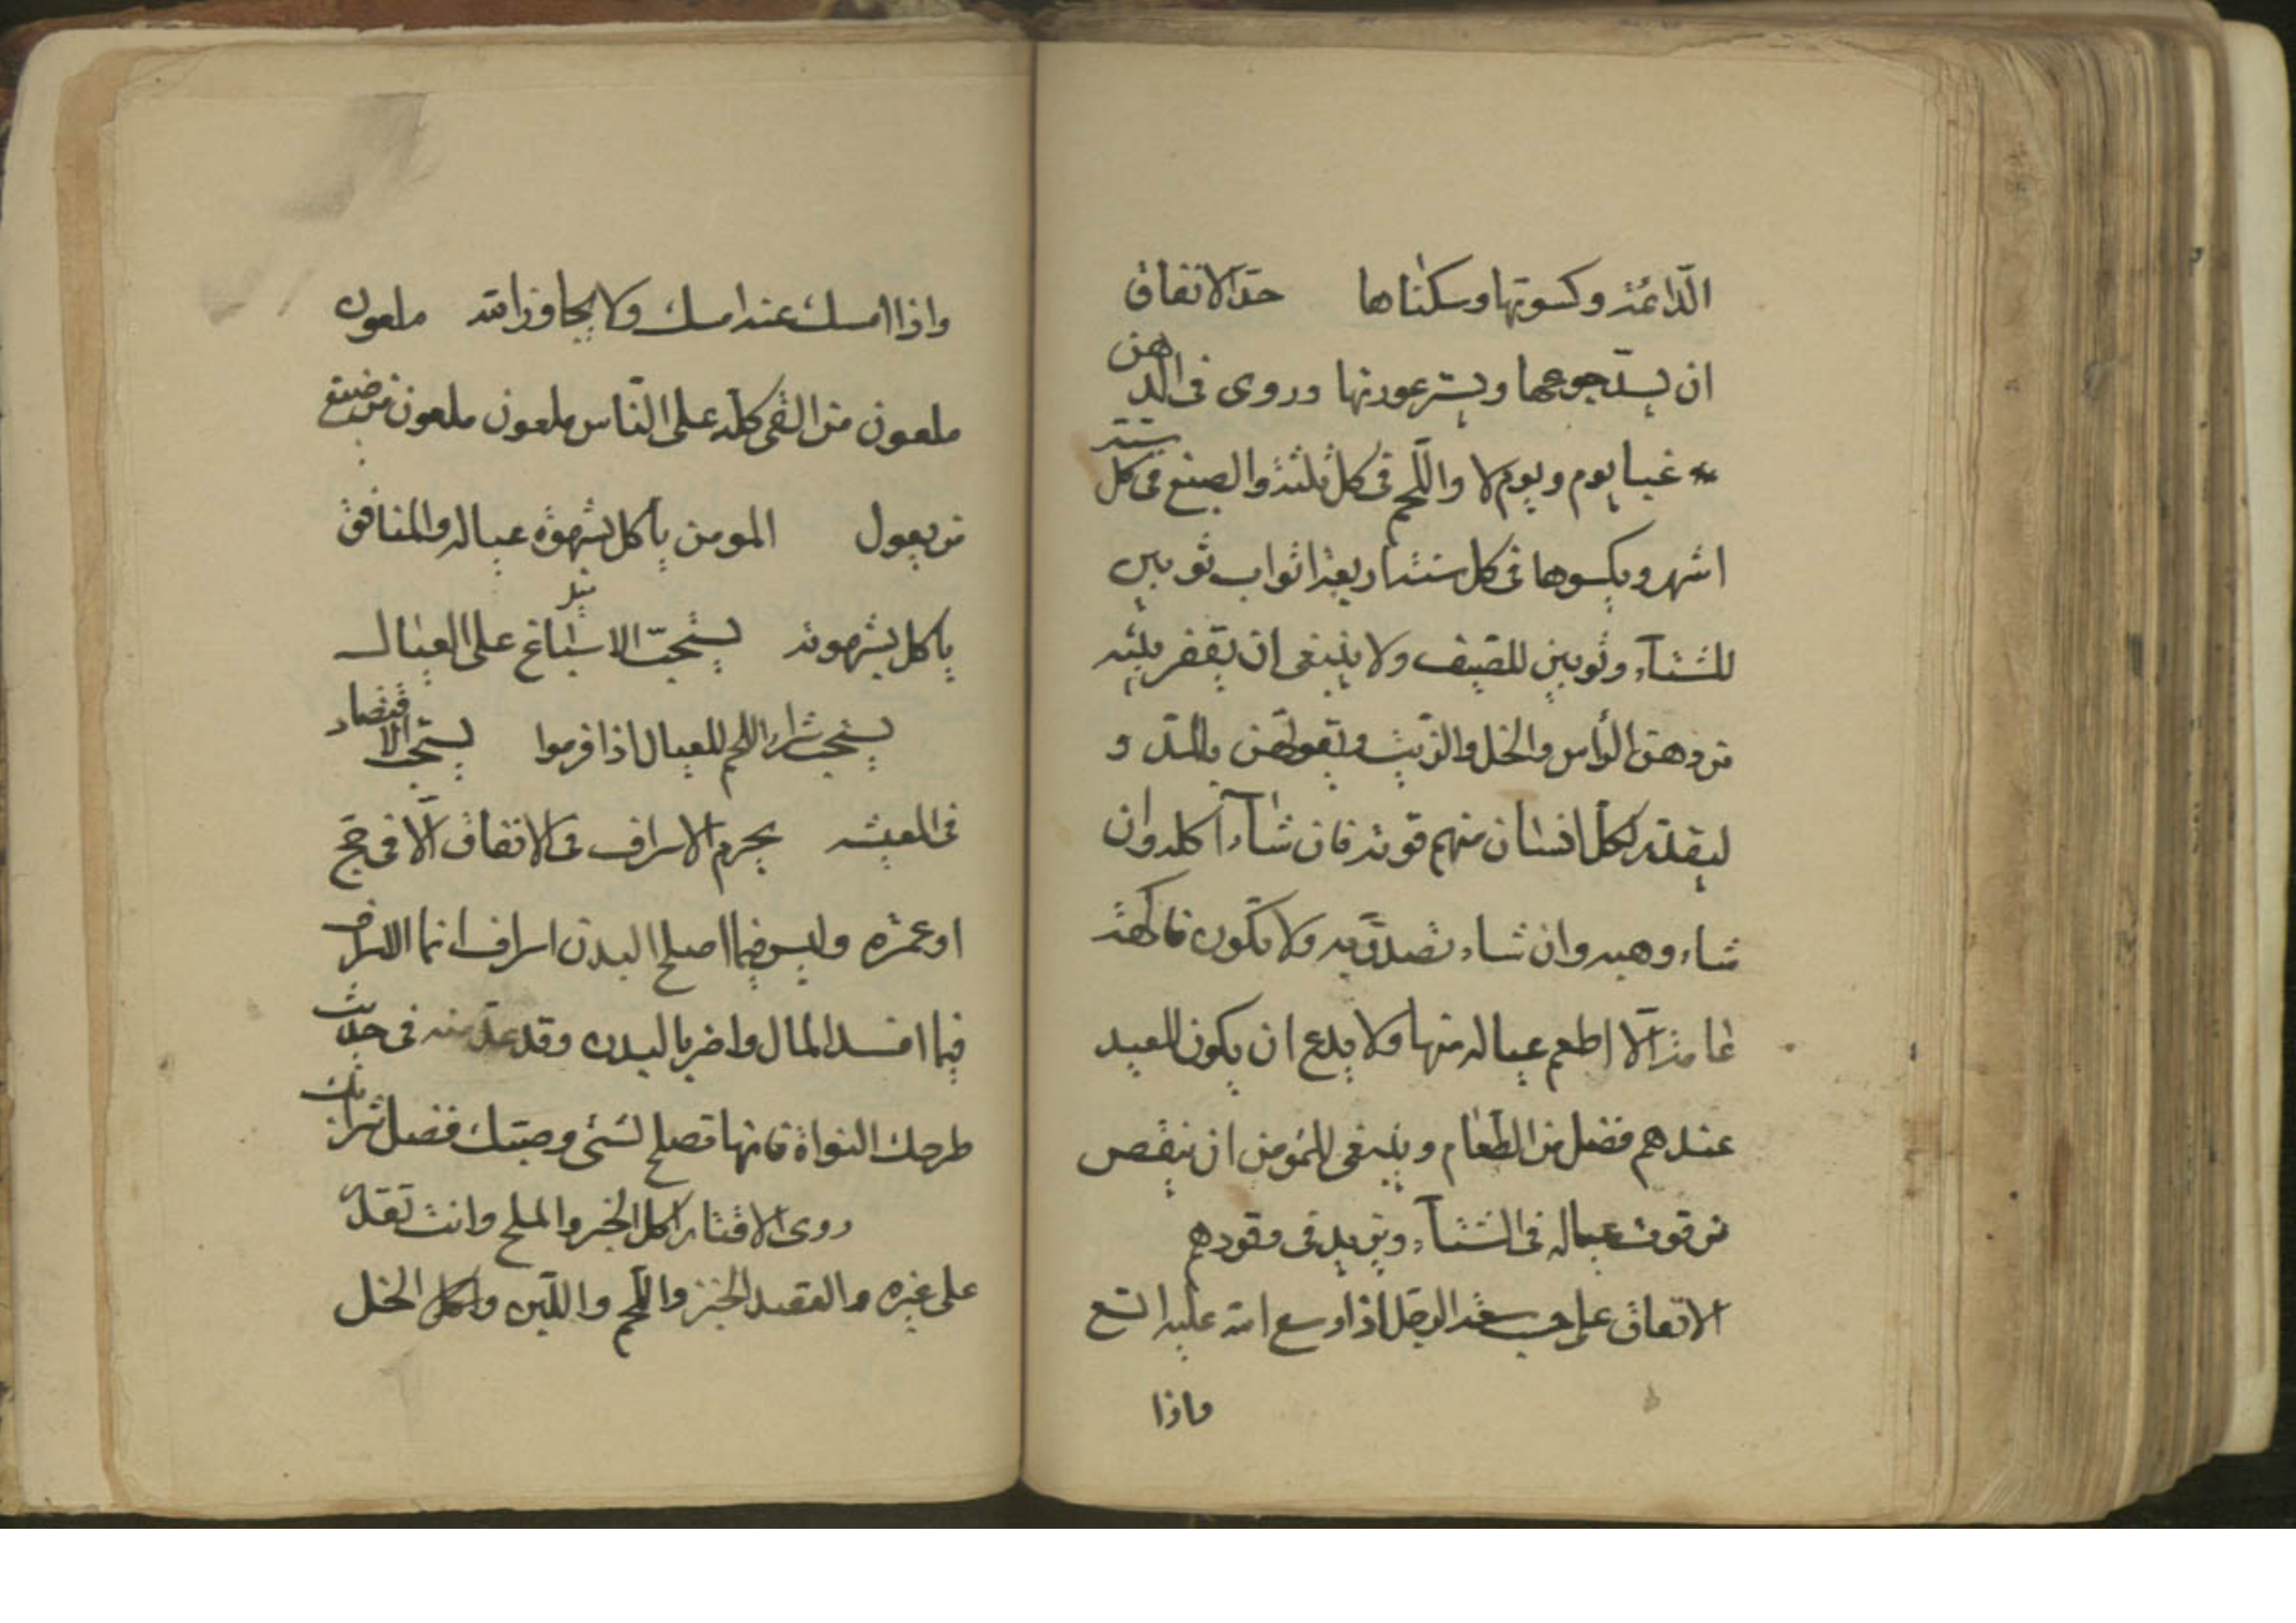 الدائمة وكسوتها وسكناها حدّ الانفاق
ان يسدّ جوعها ويستر عورتها وروى في الدهن
غبا يوم ويوم لا واللحم في كل ثلثة والصبغ في كل ستة
اشهر ويكسوها في كل سنة اربعة اثواب ثوبين
للشتآء وثوبين للصيف ولا ينبغى ان يقفر بيته
من دهن الرأس والخل والزيت ويقوتهن بالمدّ و
ليقدّر لكل انسان منهم قوته فان شآء اكله وان
شاء وهبه وان شاء تصدّق به ولا تكون فاكهة
عامة الّا اطعم عياله منها ولا يدع ان يكون للعيد
عندهم فضل من الطعام وينبغى للمؤمن ان ينقص
من قوت عياله في الشتآء ويزيد في وقودهم
الانفاق على حسب سعة الرجل اذا اوسع الله عليه اتسع
واذا
واذا امسك عنه امسك ولا يجاوز الله ملعون
ملعون من القى كلّه على الناس ملعون ملعون من ضيع
من يعول المومن ياكل بشهوة عياله والمنافق
ياكل بشهوته يستحبّ الاسباغ على العيال
يستحب شراء اللحم للعيال اذا قرموا يستحب الاقتصاد
في المعيشه يحرم الاسراف في الانفاق الّا في حج
او عمرة وليس فيما اصلح البدن اسراف انما الاسراف
فيما افسد المال واضر بالبدن وقد عدّ منه في حديث
طرحك النواة فانها تصلح لشئ وصبّك فضل شرابك
روى الاقتار اكل الخبز والملح وانت تقدر
على غيره والقصد الخبز واللحم واللبن واكل الخل